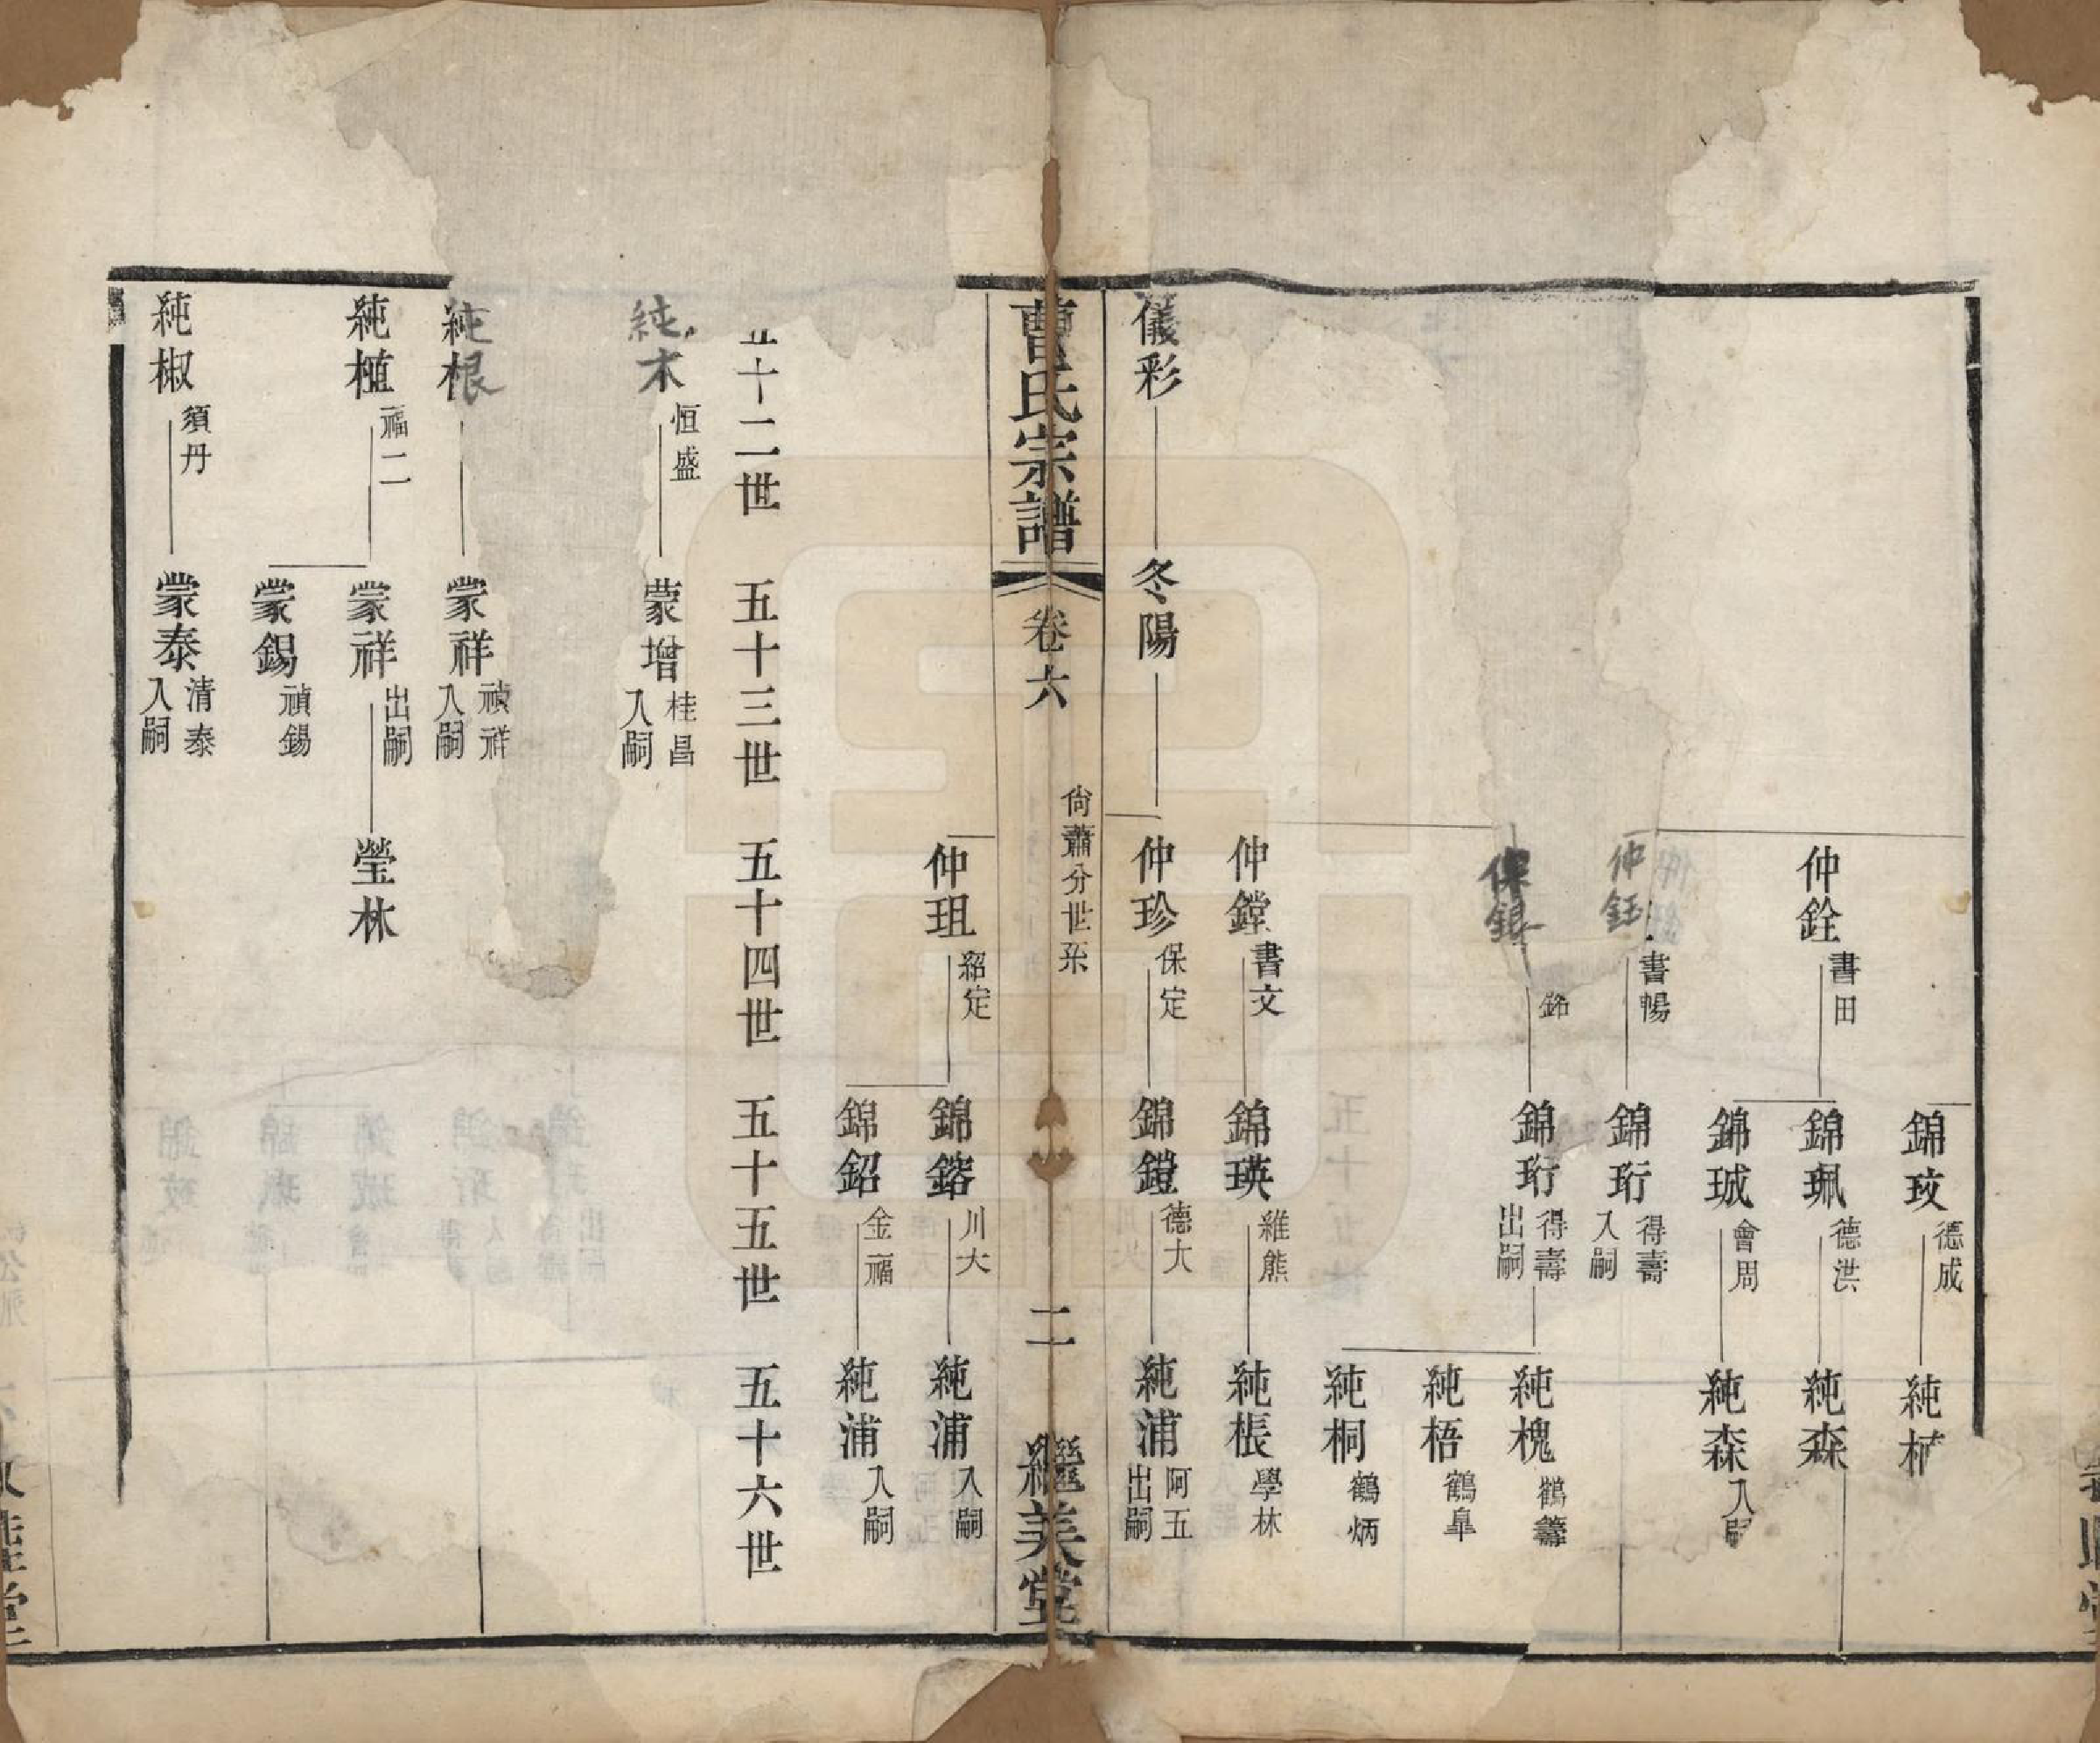 錦玟 德成
純
仲銓 書田
錦珮 德洪
純森
錦珹 會周
純森 入嗣
仲鈺 書暢
錦珩 得壽 入嗣
保銀
錦珩 得壽 出嗣
純槐 鶴籌
純梧 鶴皐
純桐 鶴炳
仲鏜 書文
錦瑛 維熊
純棖 學林
儀彩
冬陽
仲珍 保定
錦鐙 德大
純浦 阿五 出嗣
曹氏宗譜
卷六
尙蕭分世系
二
繼美堂
仲珇 紹定
錦鎔 川大
純浦 入嗣
錦鉊 金福
純浦 入嗣
五十二世 五十三世 五十四世 五十五世 五十六世
純木 恒盛
蒙增 桂昌 入嗣
純根
蒙祥 禎祥 入嗣
純植 福二
蒙祥 出嗣
瑩林
蒙錫 禎錫
純椒 須丹
蒙泰 清泰 入嗣